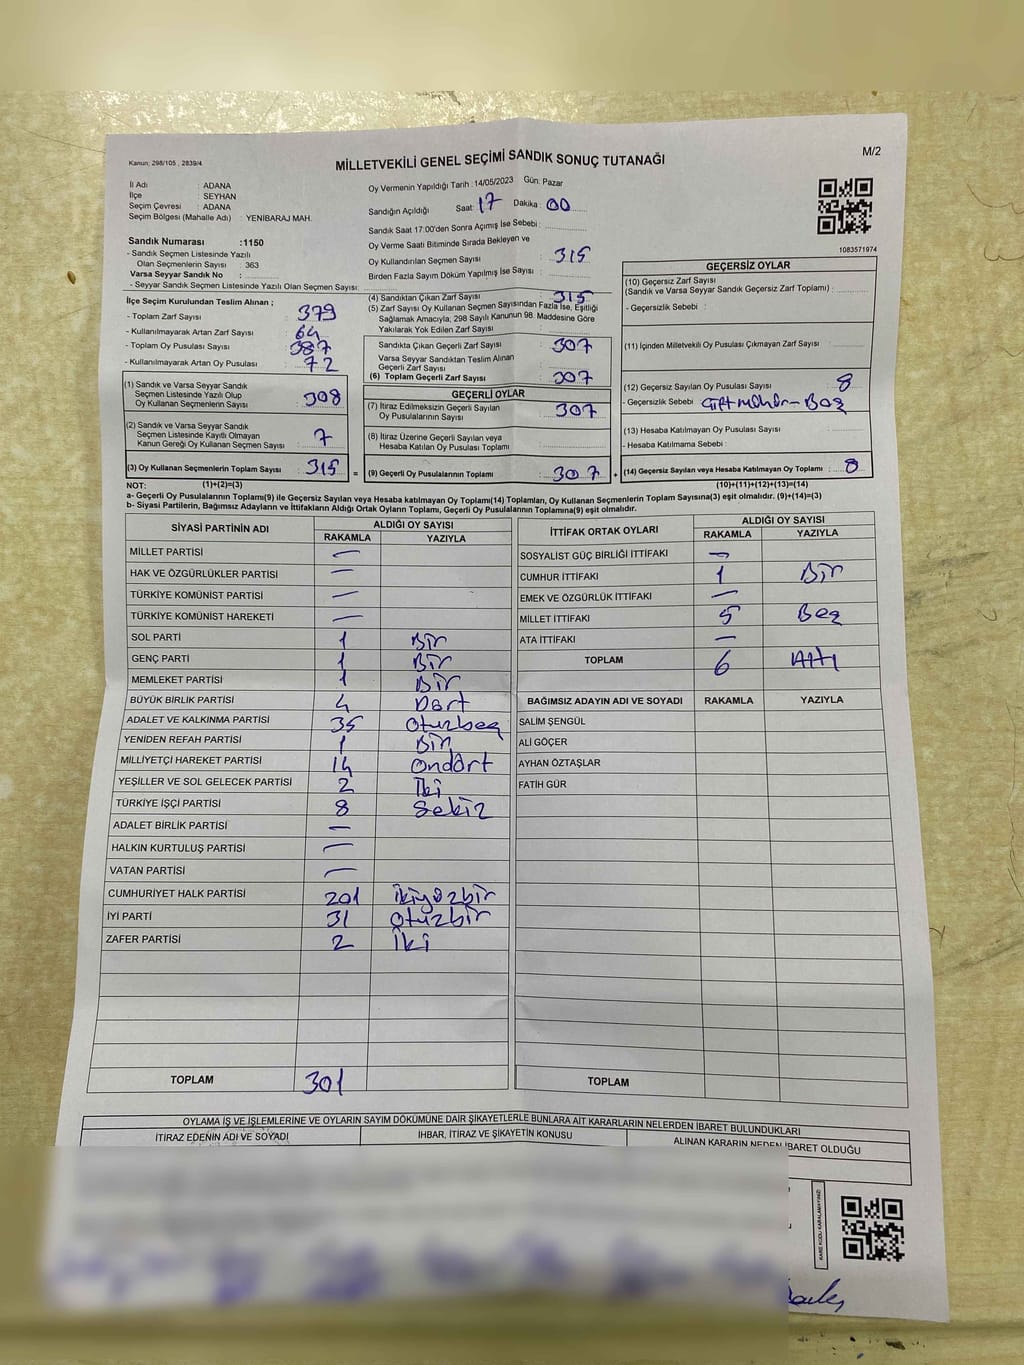 Kanun; 298/105 , 2839/4
MİLLETVEKİLİ GENEL SEÇİMİ SANDIK SONUÇ TUTANAĞI
M/2
İl Adı : ADANA
İlçe : SEYHAN
Seçim Çevresi : ADANA
Seçim Bölgesi (Mahalle Adı) : YENİBARAJ MAH.
Sandık Numarası :1150
- Sandık Seçmen Listesinde Yazılı
Olan Seçmenlerin Sayısı : 363
Varsa Seyyar Sandık No :
- Seyyar Sandık Seçmen Listesinde Yazılı Olan Seçmen Sayısı:
Oy Vermenin Yapıldığı Tarih : 14/05/2023 Gün: Pazar
Sandığın Açıldığı Saat: 17 Dakika: 00
Sandık Saat 17:00'den Sonra Açımış İse Sebebi :
Oy Verme Saati Bitiminde Sırada Bekleyen ve
Oy Kullandırılan Seçmen Sayısı : 315
Birden Fazla Sayım Döküm Yapılmış İse Sayısı :
1083571974
İlçe Seçim Kurulundan Teslim Alınan ;
- Toplam Zarf Sayısı : 379
- Kullanılmayarak Artan Zarf Sayısı : 64
- Toplam Oy Pusulası Sayısı : 387
- Kullanılmayarak Artan Oy Pusulası : 72
(1) Sandık ve Varsa Seyyar Sandık
Seçmen Listesinde Yazılı Olup
Oy Kullanan Seçmenlerin Sayısı : 308
(2) Sandık ve Varsa Seyyar Sandık
Seçmen Listesinde Kayıtlı Olmayan
Kanun Gereği Oy Kullanan Seçmen Sayısı : 7
(3) Oy Kullanan Seçmenlerin Toplam Sayısı : 315 =
(4) Sandıktan Çıkan Zarf Sayısı : 315
(5) Zarf Sayısı Oy Kullanan Seçmen Sayısından Fazla İse, Eşitliği
Sağlamak Amacıyla; 298 Sayılı Kanunun 98. Maddesine Göre
Yakılarak Yok Edilen Zarf Sayısı :
Sandıkta Çıkan Geçerli Zarf Sayısı : 307
Varsa Seyyar Sandıktan Teslim Alınan
Geçerli Zarf Sayısı :
(6) Toplam Geçerli Zarf Sayısı : 307
GEÇERLİ OYLAR
(7) İtiraz Edilmeksizin Geçerli Sayılan
Oy Pusulalarının Sayısı : 307
(8) İtiraz Üzerine Geçerli Sayılan veya
Hesaba Katılan Oy Pusulası Toplamı :
(9) Geçerli Oy Pusulalarının Toplamı : 307 +
GEÇERSİZ OYLAR
(10) Geçersiz Zarf Sayısı
(Sandık ve Varsa Seyyar Sandık Geçersiz Zarf Toplamı) :
- Geçersizlik Sebebi :
(11) İçinden Milletvekili Oy Pusulası Çıkmayan Zarf Sayısı :
(12) Geçersiz Sayılan Oy Pusulası Sayısı : 8
- Geçersizlik Sebebi : Çift mühür - Boş
(13) Hesaba Katılmayan Oy Pusulası Sayısı :
- Hesaba Katılmama Sebebi :
(14) Geçersiz Sayılan veya Hesaba Katılmayan Oy Toplamı : 8
NOT: (1)+(2)=(3) (10)+(11)+(12)+(13)=(14)
a- Geçerli Oy Pusulalarının Toplamı(9) ile Geçersiz Sayılan veya Hesaba katılmayan Oy Toplamı(14) Toplamları, Oy Kullanan Seçmenlerin Toplam Sayısına(3) eşit olmalıdır. (9)+(14)=(3)
b- Siyasi Partilerin, Bağımsız Adayların ve İttifakların Aldığı Ortak Oyların Toplamı, Geçerli Oy Pusulalarının Toplamına(9) eşit olmalıdır.
SİYASİ PARTİNİN ADI ALDIĞI OY SAYISI
RAKAMLA YAZIYLA
MİLLET PARTİSİ —
HAK VE ÖZGÜRLÜKLER PARTİSİ —
TÜRKİYE KOMÜNİST PARTİSİ —
TÜRKİYE KOMÜNİST HAREKETİ —
SOL PARTİ 1 Bir
GENÇ PARTİ 1 Bir
MEMLEKET PARTİSİ 1 Bir
BÜYÜK BİRLİK PARTİSİ 4 Dört
ADALET VE KALKINMA PARTİSİ 35 otuzbeş
YENİDEN REFAH PARTİSİ 1 Bir
MİLLİYETÇİ HAREKET PARTİSİ 14 ondört
YEŞİLLER VE SOL GELECEK PARTİSİ 2 İki
TÜRKİYE İŞÇİ PARTİSİ 8 sekiz
ADALET BİRLİK PARTİSİ —
HALKIN KURTULUŞ PARTİSİ —
VATAN PARTİSİ —
CUMHURİYET HALK PARTİSİ 201 ikiyüzbir
İYİ PARTİ 31 otuzbir
ZAFER PARTİSİ 2 İki
TOPLAM 301
İTTİFAK ORTAK OYLARI ALDIĞI OY SAYISI
RAKAMLA YAZIYLA
SOSYALİST GÜÇ BİRLİĞİ İTTİFAKI —
CUMHUR İTTİFAKI 1 Bir
EMEK VE ÖZGÜRLÜK İTTİFAKI —
MİLLET İTTİFAKI 5 Beş
ATA İTTİFAKI —
TOPLAM 6 Altı
BAĞIMSIZ ADAYIN ADI VE SOYADI RAKAMLA YAZIYLA
SALİM ŞENGÜL
ALİ GÖÇER
AYHAN ÖZTAŞLAR
FATİH GÜR
TOPLAM
OYLAMA İŞ VE İŞLEMLERİNE VE OYLARIN SAYIM DÖKÜMÜNE DAİR ŞİKAYETLERLE BUNLARA AİT KARARLARIN NELERDEN İBARET BULUNDUKLARI
İTİRAZ EDENİN ADI VE SOYADI İHBAR, İTİRAZ VE ŞİKAYETİN KONUSU ALINAN KARARIN NEDEN İBARET OLDUĞU
KARE KODU KARALAMAYINIZ!